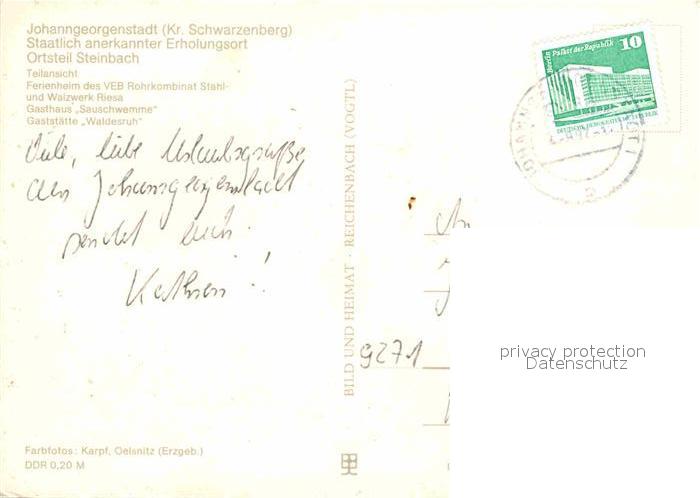 Johanngeorgenstadt (Kr. Schwarzenberg)
Staatlich anerkannter Erholungsort
Ortsteil Steinbach
Teilansicht
Ferienheim des VEB Rohrkombinat Stahl-
und Walzwerk Riesa
Gasthaus „Sauschwemme“
Gaststätte „Waldesruh“
Viele, liebe Urlaubsgrüße
aus Johanngeorgenstadt
sendet euch
Kathrin!
Farbfotos: Karpf, Oelsnitz (Erzgeb.)
DDR 0,20 M
BILD UND HEIMAT · REICHENBACH (VOGTL)
Berlin Palast der Republik
10
DEUTSCHE DEMOKRATISCHE REPUBLIK
An
9271
privacy protection
Datenschutz